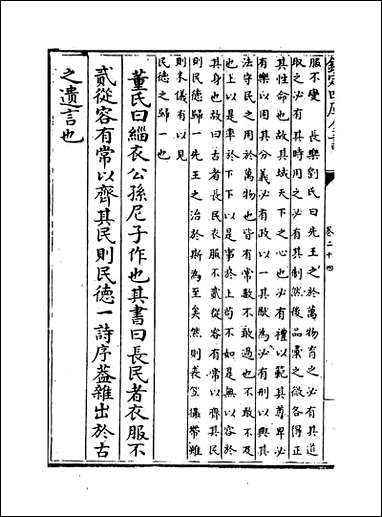 欽定四庫全書
卷二十四
服不變　長樂劉氏曰先王之於萬物育之必有其道
取之必有其時用之必有其制然後品彙之微各得正
其性命也故其域天下之心也必有禮以範其尊卑必
有樂以用其分義必有政以一其猷為必有刑以興其
法守民之用於萬物也皆有常數不敢過也不敢不及
也上以是率於下下以是事於上苟不如是無以容於
其身也故曰古者長民衣服不貳從容有常以齊其民
則民德歸一先王之治於斯為至矣然則笠帶雖
則末儀有以見
民德之歸一也
董氏曰緇衣公孫尼子作也其書曰長民者衣服不
貳從容有常以齊其民則民德一詩序葢雜出於古
之遺言也